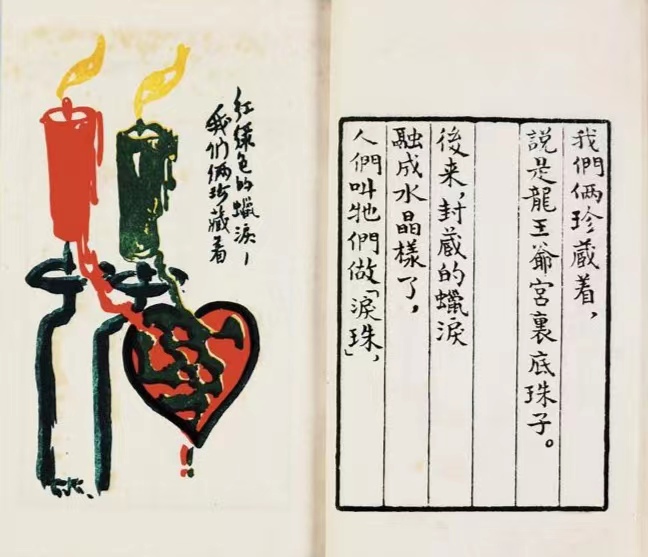 我們俩珍蔵着，
說是龍王爺宮裏底珠子。
後来，封蔵的蠟淚
融成水晶樣了，
人們叫牠們做「淚珠」，
红綠色的蠟淚—
我们俩珍藏着